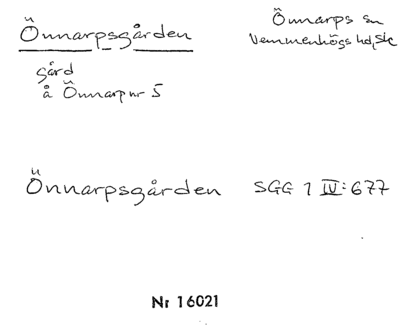 Önnarpsgården
Önnarps sn
Vemmenhögs hd, Sk
gård
å Önnarp nr 5
Önnarpsgården
SGG 1 IV:677
Nr 16021